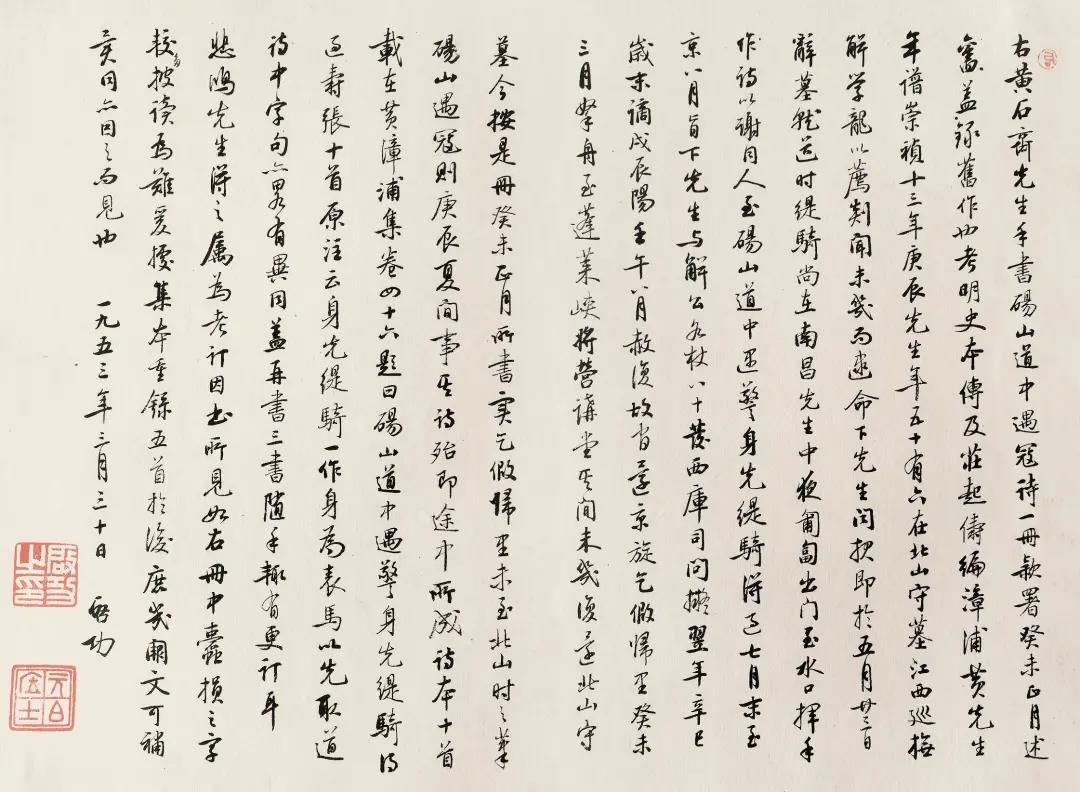 右黄石齋先生手書碭山道中遇寇詩一冊款署癸未正月述
畬盖録舊作也考明史本傳及莊起儔編漳浦黄先生
年譜崇禎十三年庚辰先生年五十有六在北山守墓江西巡撫
解學龍以薦剡聞未幾而逮命下先生聞報即於五月廿三日
辭墓就道时缇騎尚在南昌先生中夜匍匐出门至水口揮手
作詩以謝同人至碭山道中遇警身先缇騎得過七月末至
京八月旨下先生与解公各杖八十發西庫司问擬翌年辛巳
歲末谪戍辰陽壬午八月赦復故官還京旋乞假歸里癸未
三月拏舟至蓬萊峡将營講堂其间未幾復还北山守
墓今按是冊癸未正月所書実乞假歸里未至北山时之筆
碭山遇寇則庚辰夏间事其詩殆即途中所成詩本十首
載在黄漳浦集卷四十六題曰碭山道中遇警身先缇騎得
过壽張十首原注云身先缇騎一作身為表馬以先取道
詩中字句亦畧有異同盖再書三書随手輙有更订耳
悲鴻先生得之属為考订因书所見如右冊中蠹損之字
較多披读為難爰據集本重録五首於後庶幾闕文可補
異同亦因之而見也 一九五三年三月三十日 啓功
啟功之印
元白居士